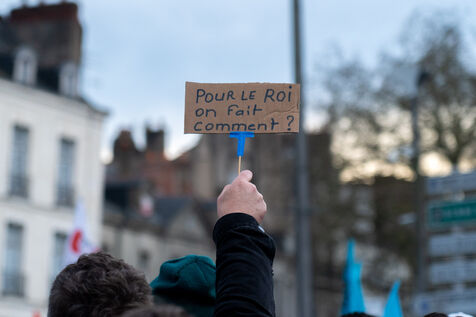 POUR LE ROI
on fait
comment ?